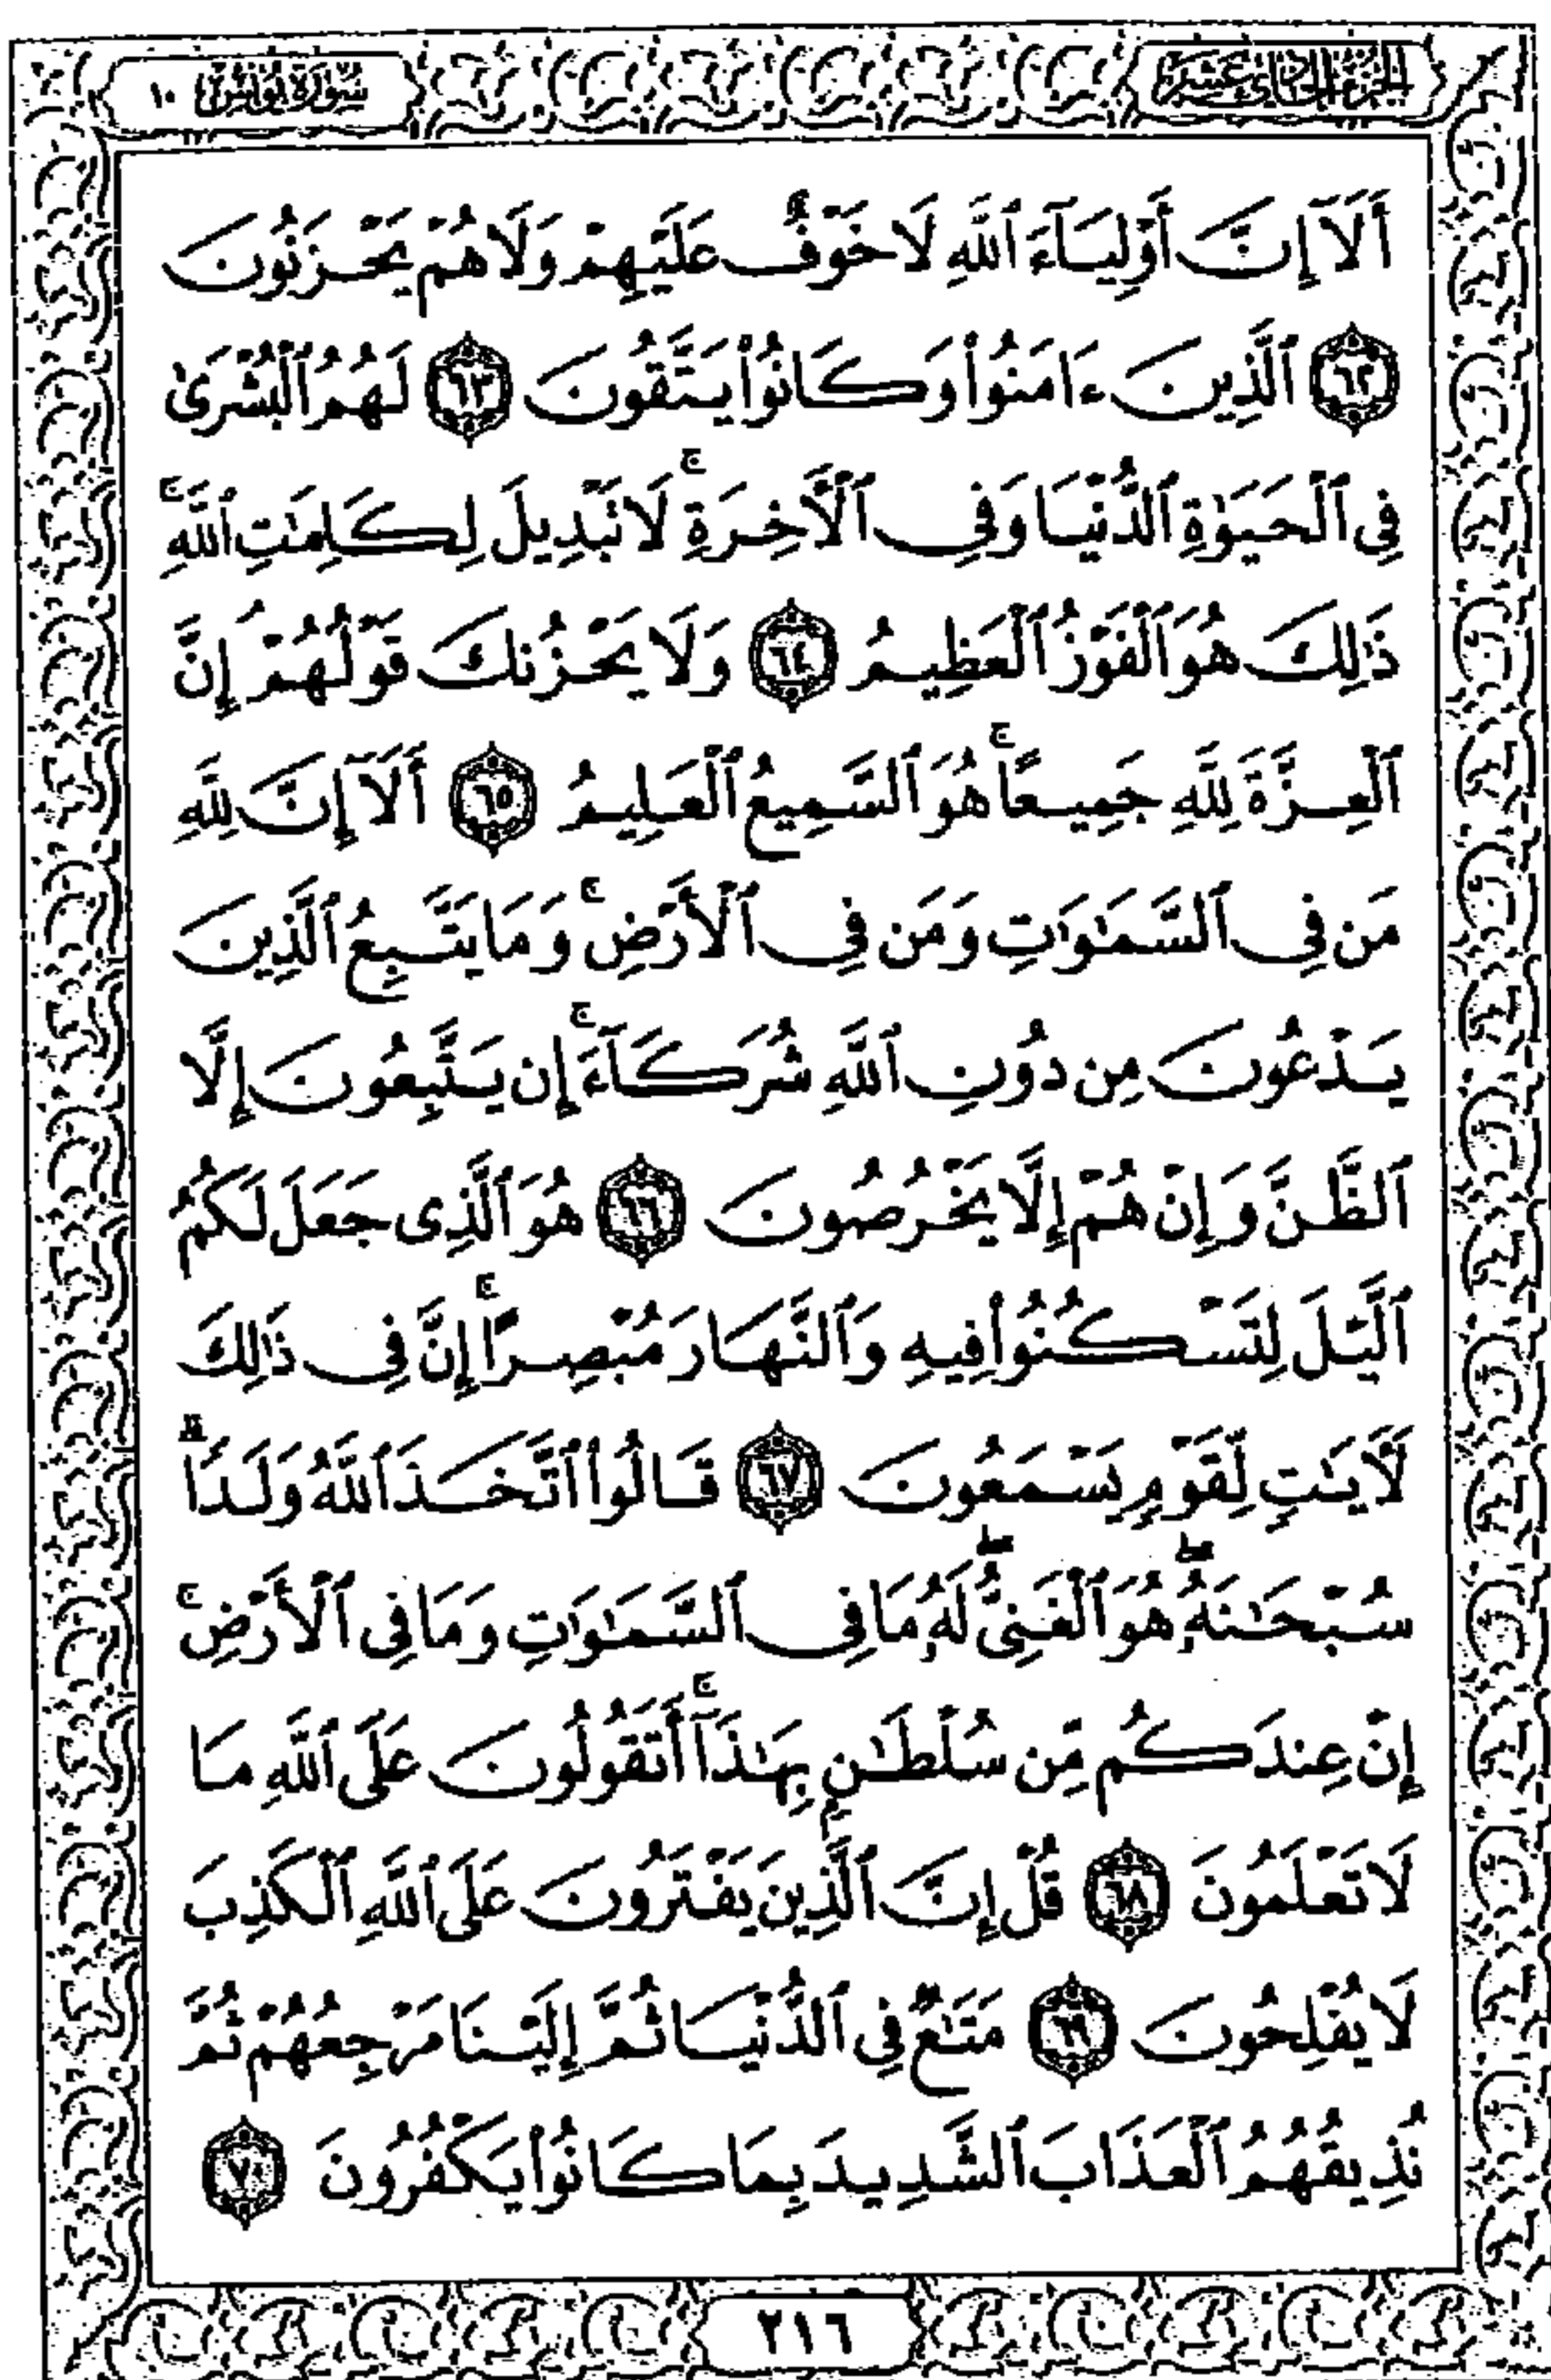 الجزء الحادي عشر
سورة يونس ١٠
أَلَآ إِنَّ أَوْلِيَآءَ ٱللَّهِ لَا خَوْفٌ عَلَيْهِمْ وَلَا هُمْ يَحْزَنُونَ
٦٢ ٱلَّذِينَ ءَامَنُوا۟ وَكَانُوا۟ يَتَّقُونَ ٦٣ لَهُمُ ٱلْبُشْرَىٰ
فِى ٱلْحَيَوٰةِ ٱلدُّنْيَا وَفِى ٱلْأَخِرَةِ ۚ لَا تَبْدِيلَ لِكَلِمَٰتِ ٱللَّهِ ۚ
ذَٰلِكَ هُوَ ٱلْفَوْزُ ٱلْعَظِيمُ ٦٤ وَلَا يَحْزُنكَ قَوْلُهُمْ ۘ إِنَّ
ٱلْعِزَّةَ لِلَّهِ جَمِيعًا ۚ هُوَ ٱلسَّمِيعُ ٱلْعَلِيمُ ٦٥ أَلَآ إِنَّ لِلَّهِ
مَن فِى ٱلسَّمَٰوَٰتِ وَمَن فِى ٱلْأَرْضِ ۚ وَمَا يَتَّبِعُ ٱلَّذِينَ
يَدْعُونَ مِن دُونِ ٱللَّهِ شُرَكَآءَ ۚ إِن يَتَّبِعُونَ إِلَّا
ٱلظَّنَّ وَإِنْ هُمْ إِلَّا يَخْرُصُونَ ٦٦ هُوَ ٱلَّذِى جَعَلَ لَكُمُ
ٱلَّيْلَ لِتَسْكُنُوا۟ فِيهِ وَٱلنَّهَارَ مُبْصِرًا ۚ إِنَّ فِى ذَٰلِكَ
لَءَايَٰتٍ لِّقَوْمٍ يَسْمَعُونَ ٦٧ قَالُوا۟ ٱتَّخَذَ ٱللَّهُ وَلَدًا ۗ
سُبْحَٰنَهُۥ ۖ هُوَ ٱلْغَنِىُّ ۖ لَهُۥ مَا فِى ٱلسَّمَٰوَٰتِ وَمَا فِى ٱلْأَرْضِ ۚ
إِنْ عِندَكُم مِّن سُلْطَٰنٍۭ بِهَٰذَآ ۚ أَتَقُولُونَ عَلَى ٱللَّهِ مَا
لَا تَعْلَمُونَ ٦٨ قُلْ إِنَّ ٱلَّذِينَ يَفْتَرُونَ عَلَى ٱللَّهِ ٱلْكَذِبَ
لَا يُفْلِحُونَ ٦٩ مَتَٰعٌ فِى ٱلدُّنْيَا ثُمَّ إِلَيْنَا مَرْجِعُهُمْ ثُمَّ
نُذِيقُهُمُ ٱلْعَذَابَ ٱلشَّدِيدَ بِمَا كَانُوا۟ يَكْفُرُونَ ٧٠
٢١٦